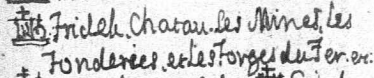 Fridek, Chatau. les Mines, les
Fonderies, et les Forges du Fer. et: